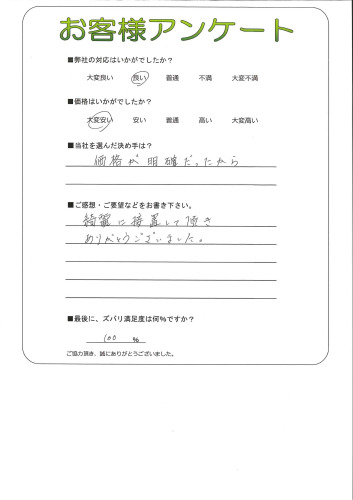 お客様アンケート
■弊社の対応はいかがでしたか？
大変良い 良い 普通 不満 大変不満
■価格はいかがでしたか？
大変安い 安い 普通 高い 大変高い
■当社を選んだ決め手は？
価格が明確だったから
■ご感想・ご要望などをお書き下さい。
綺麗に接置して頂き
ありがとうございました。
■最後に、ズバリ満足度は何％ですか？
100 ％
ご協力頂き、誠にありがとうございました。